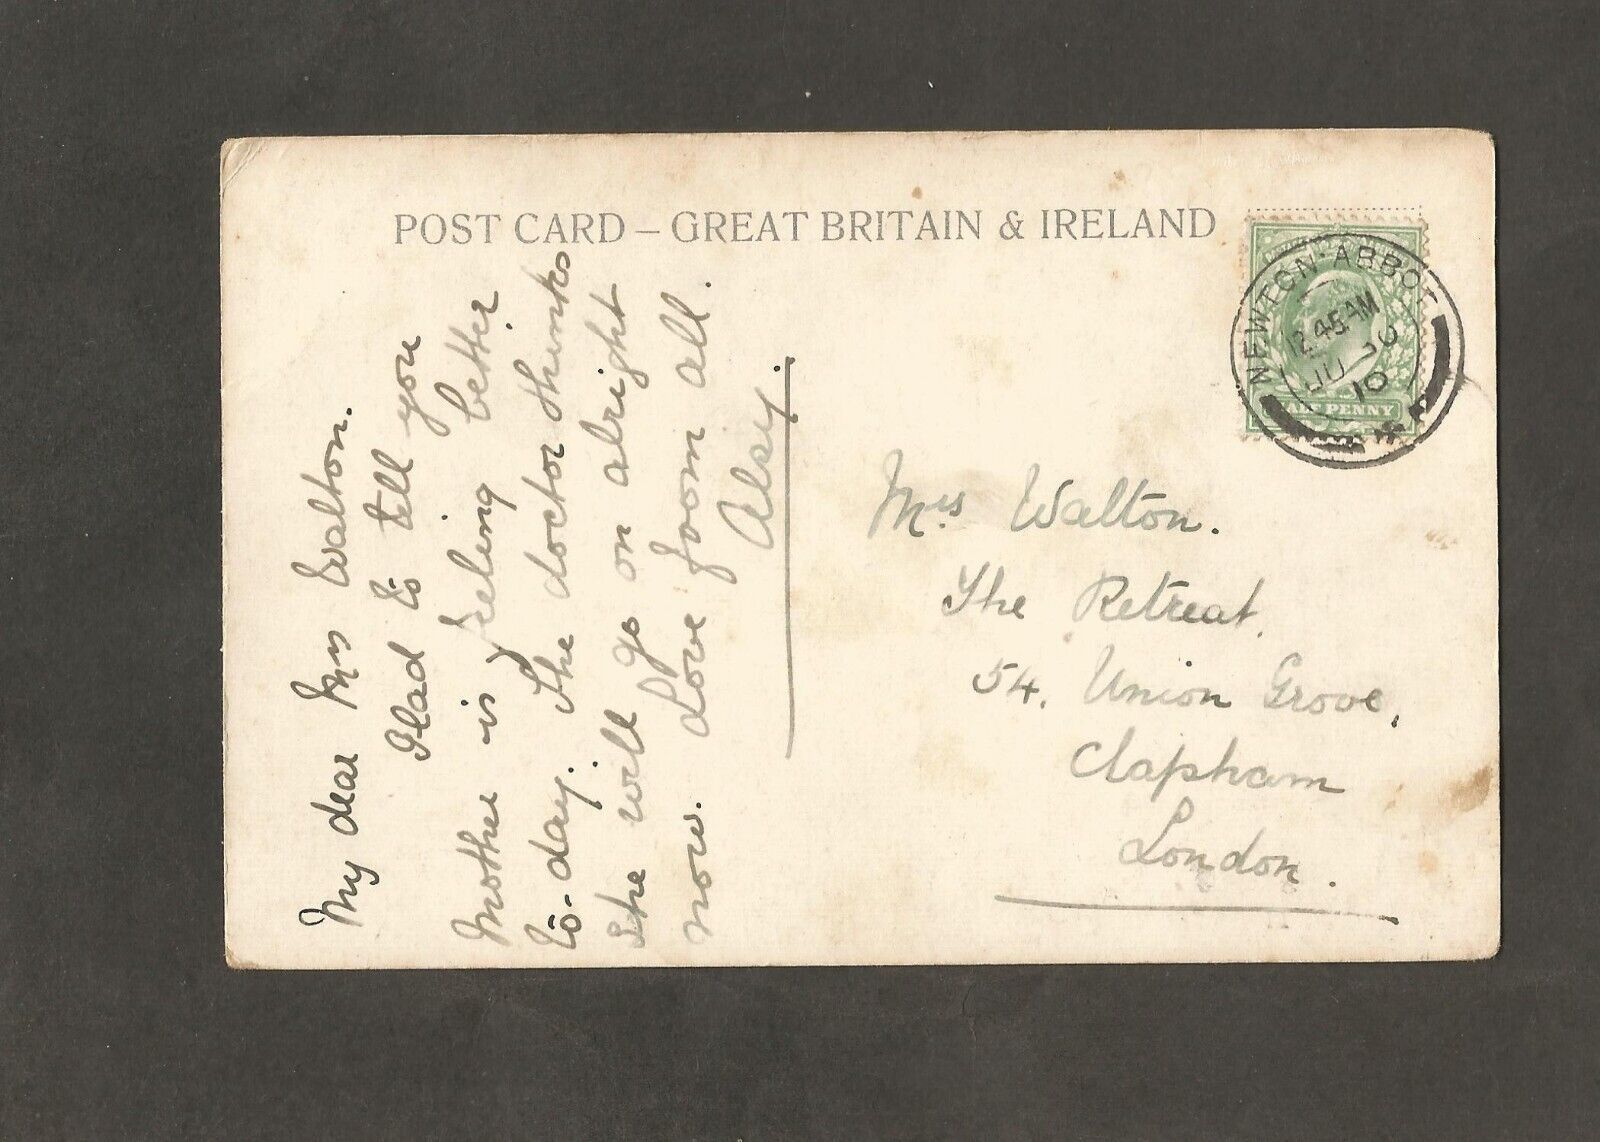 POST CARD – GREAT BRITAIN & IRELAND
NEWTON·ABBOT
12.45 AM
JU 30
10
HALF PENNY
My dear Mrs Walton.
Glad to tell you
Mother is feeling better
to-day. The doctor thinks
she will go on alright
now. Love from all.
Alsy.
Mrs Walton.
The Retreat,
54, Union Grove,
Clapham
London.